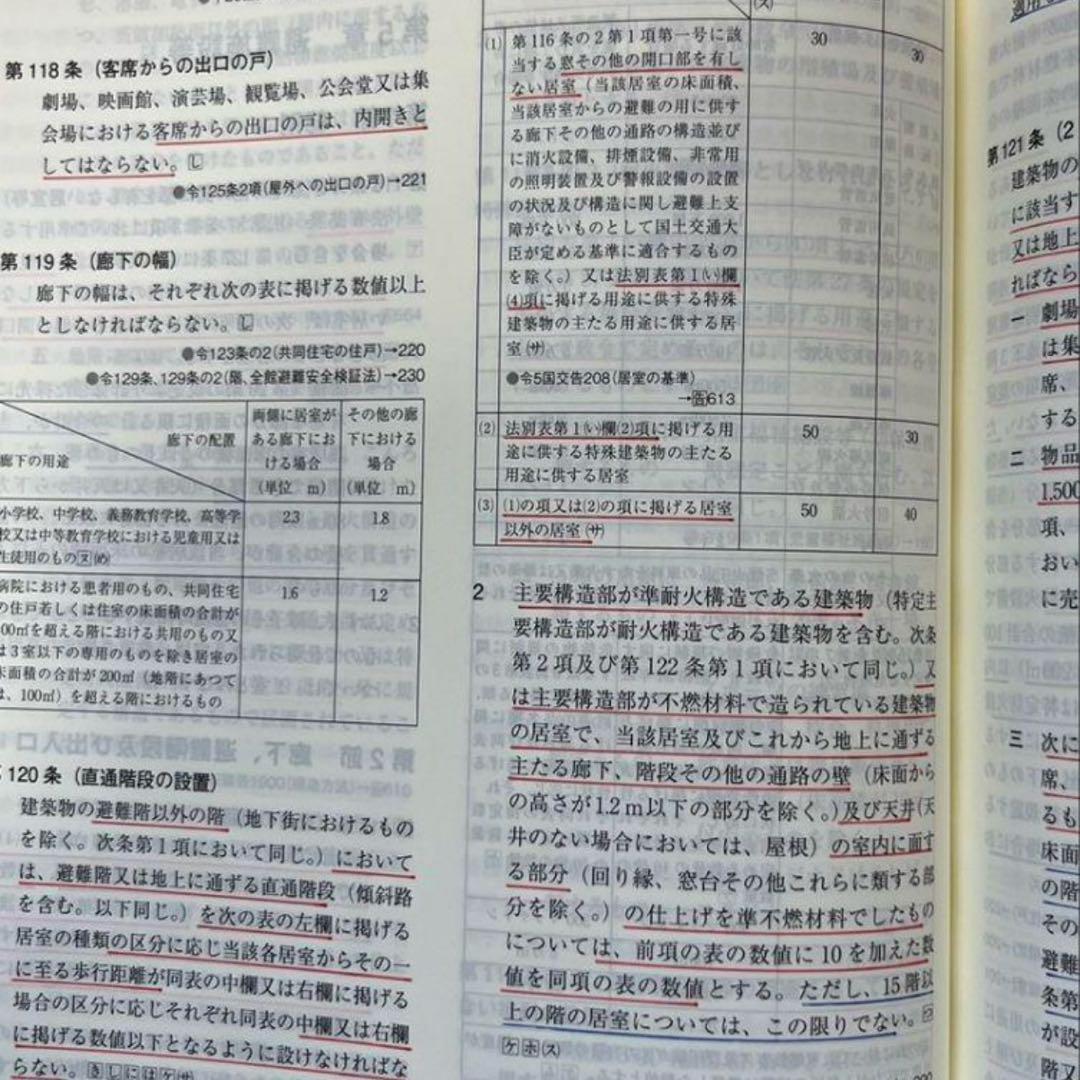 第118条（客席からの出口の戸）
劇場、映画館、演芸場、観覧場、公会堂又は集
会場における客席からの出口の戸は、内開きと
してはならない。
●令125条2項（屋外への出口の戸）→221
第119条（廊下の幅）
廊下の幅は、それぞれ次の表に掲げる数値以上
としなければならない。
●令123条の2（共同住宅の住戸）→220
●令129条、129条の2（階、全館避難安全検証法）→230
廊下の配置
廊下の用途
両側に居室が
ある廊下にお
ける場合
（単位 m）
その他の廊
下における
場合
（単位 m）
小学校、中学校、義務教育学校、高等学
校又は中等教育学校における児童用又は
生徒用のもの
2.3
1.8
病院における患者用のもの、共同住宅
の住戸若しくは住室の床面積の合計が
00㎡を超える階における共用のもの又
は3室以下の専用のものを除き居室の
床面積の合計が200㎡（地階にあつて
は、100㎡）を超える階におけるもの
1.6
1.2
120条（直通階段の設置）
建築物の避難階以外の階（地下街におけるもの
を除く。次条第1項において同じ。）において
は、避難階又は地上に通ずる直通階段（傾斜路
を含む。以下同じ。）を次の表の左欄に掲げる
居室の種類の区分に応じ当該各居室からその一
に至る歩行距離が同表の中欄又は右欄に掲げる
場合の区分に応じそれぞれ同表の中欄又は右欄
に掲げる数値以下となるように設けなければな
らない。
(ス)
(1) 第116条の2第1項第一号に該
当する窓その他の開口部を有し
ない居室（当該居室の床面積、
当該居室からの避難の用に供す
る廊下その他の通路の構造並び
に消火設備、排煙設備、非常用
の照明装置及び警報設備の設置
の状況及び構造に関し避難上支
障がないものとして国土交通大
臣が定める基準に適合するもの
を除く。）又は法別表第1(い)欄
(4)項に掲げる用途に供する特殊
建築物の主たる用途に供する居
室(サ)
●令5国交告208（居室の基準）
→告613
30
30
(2) 法別表第1(い)欄(2)項に掲げる用
途に供する特殊建築物の主たる
用途に供する居室
50
30
(3) (1)の項又は(2)の項に掲げる居室
以外の居室(サ)
50
40
2 主要構造部が準耐火構造である建築物（特定主
要構造部が耐火構造である建築物を含む。次条
第2項及び第122条第1項において同じ。）又
は主要構造部が不燃材料で造られている建築物
の居室で、当該居室及びこれから地上に通ずる
主たる廊下、階段その他の通路の壁（床面から
の高さが1.2m以下の部分を除く。）及び天井（天
井のない場合においては、屋根）の室内に面す
る部分（回り縁、窓台その他これらに類する部
分を除く。）の仕上げを準不燃材料でしたもの
については、前項の表の数値に10を加えた数
値を同項の表の数値とする。ただし、15階以
上の階の居室については、この限りでない。
ケホ(ス)
第121条（2
建築物の
に該当す
又は地上
ればなら
一 劇場
は集
席、
する
二 物品
1,500
項、
おい
に売
三 次に
席、
るも
床面
の階
その
避難
条第
が設
階又